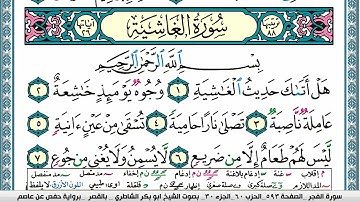 ترتيبها ٨٨ سُورَةُ الغَاشِيَةِ آياتها ٢٦
بِسْمِ اللَّهِ الرَّحْمَٰنِ الرَّحِيمِ
هَلْ أَتَىٰكَ حَدِيثُ ٱلْغَٰشِيَةِ ١ وُجُوهٌ يَوْمَئِذٍ خَٰشِعَةٌ ٢
عَامِلَةٌ نَّاصِبَةٌ ٣ تَصْلَىٰ نَارًا حَامِيَةً ٤ تُسْقَىٰ مِنْ عَيْنٍ ءَانِيَةٍ ٥
لَّيْسَ لَهُمْ طَعَامٌ إِلَّا مِن ضَرِيعٍ ٦ لَّا يُسْمِنُ وَلَا يُغْنِى مِن جُوعٍ ٧
سورة الفجر _ الصفحة ٥٩٣ _ الجزء ٦٠ _ الجزء ٣٠ _ بصوت الشيخ أبو بكر الشاطري _ بالقصر _ برواية حفص عن عاصم